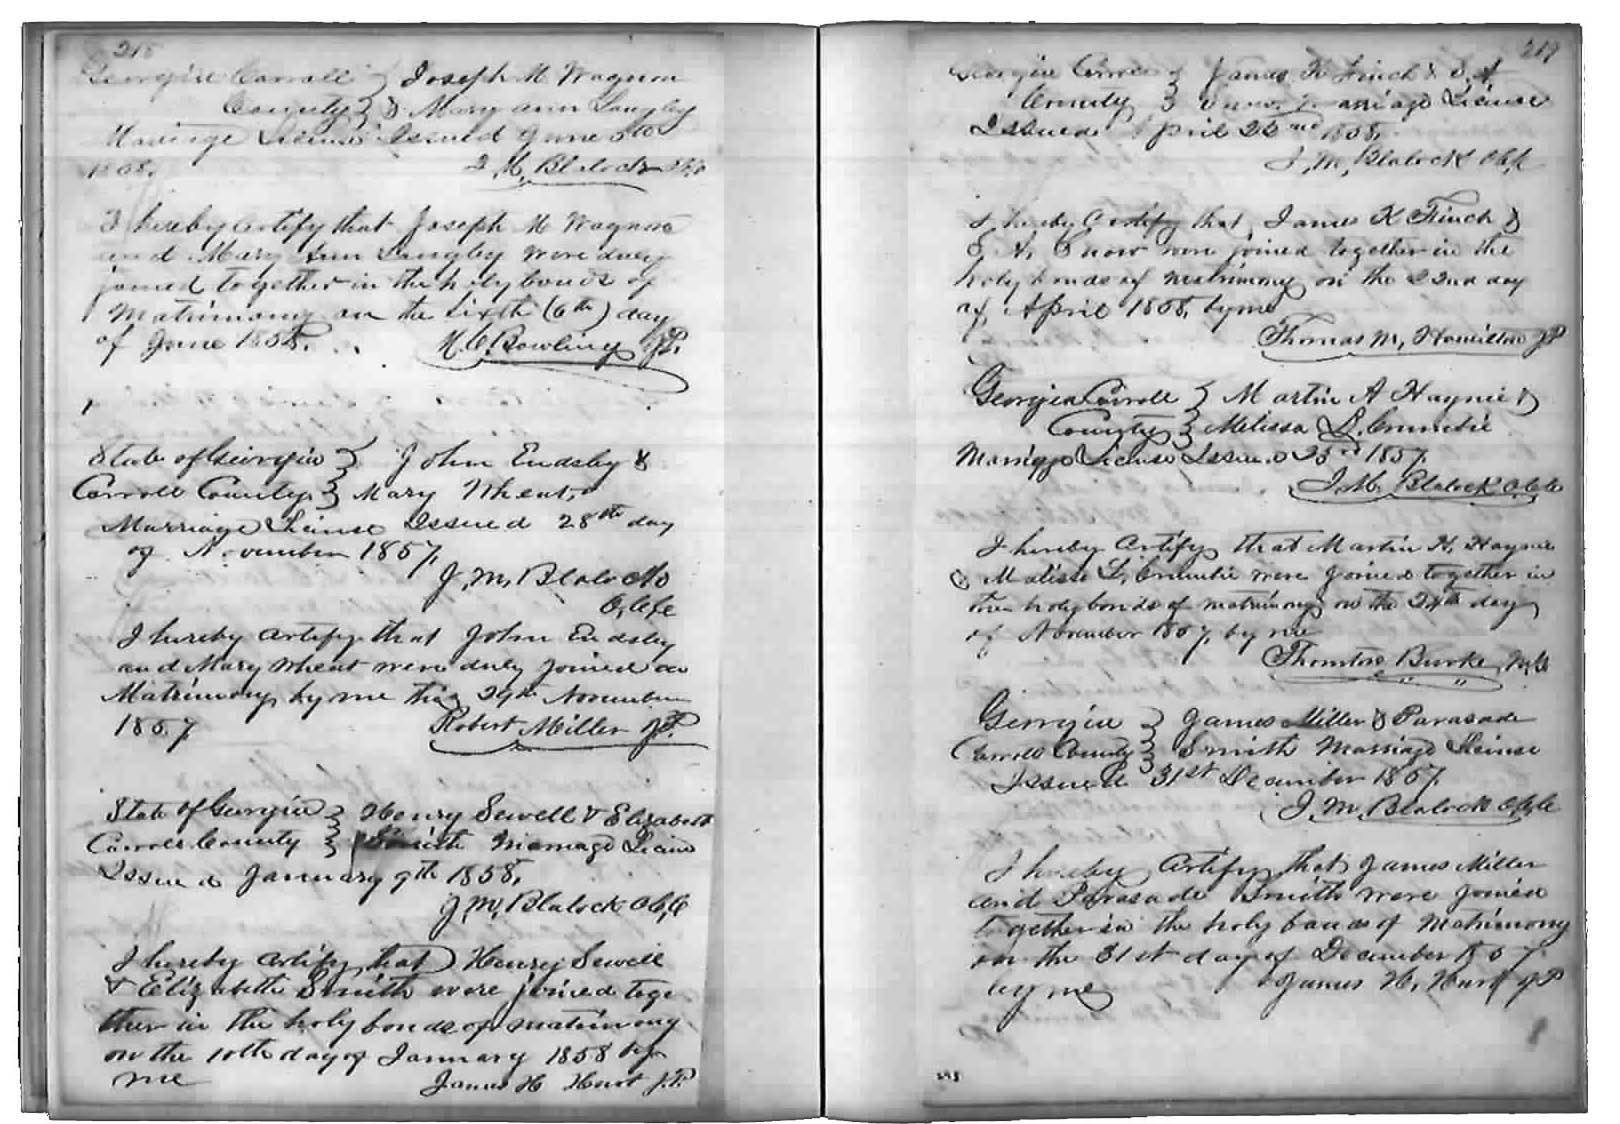 218
Georgia Carroll } Joseph M Wagnon
County } & Mary Ann Langley
Marriage License Issued June 5th
1858. J. M, Blalock
I hereby certify that Joseph M Wagnon
and Mary Ann Langley were duly
joined together in the holy bonds of
Matrimony on the Sixth (6th) day
of June 1858. Bowling J.P.
State of Georgia } John Endsley &
Carroll County } Mary Wheat,
Marriage License Issued 28th day
of November 1857,
J, M, Blalock
C,C,C,o
I hereby certify that John Endsley
and Mary Wheat were duly joined in
Matrimony by me this 29th November
1857 Robert Miller J.P.
State of Georgia } Henry Sewell & Elizabeth
Carroll County } Smith Marriage License
Issued January 9th 1858,
J, M, Blalock
I hereby certify that Henry Sewell
& Elizabeth Smith were joined toge
ther in the holy bonds of matrimony
on the 10th day of January 1858 by
me James H Hurt J.P.
219
Georgia Carroll } James K Finch & S, A
County } Snow Marriage License
Issued April 22nd 1858,
J, M, Blalock
I hereby certify that, James K Finch &
S, A, Snow were joined together in the
holy bonds of matrimony on the 22nd day
of, April 1858, by me
Thomas M, Hamilton J P
Georgia Carroll } Martin A Haynie &
County } Melissa L.
Marriage License Issued 23rd 1857,
J, M, Blalock
I hereby certify that Martin H, Haynie
& Malissa L, were joined together in
the holy bonds of matrimony on the 24th day
of November 1857, by me
Thornton Burke, M,G
Georgia } James Miller & Parasade
Carroll County } Smith Marriage License
Issued 31st December 1857,
J, M, Blalock
I hereby certify that James Miller
and Parasade Smith were joined
together in the holy bonds of Matrimony
on the 31st day of December 1857.
by me James H, Hurt J P